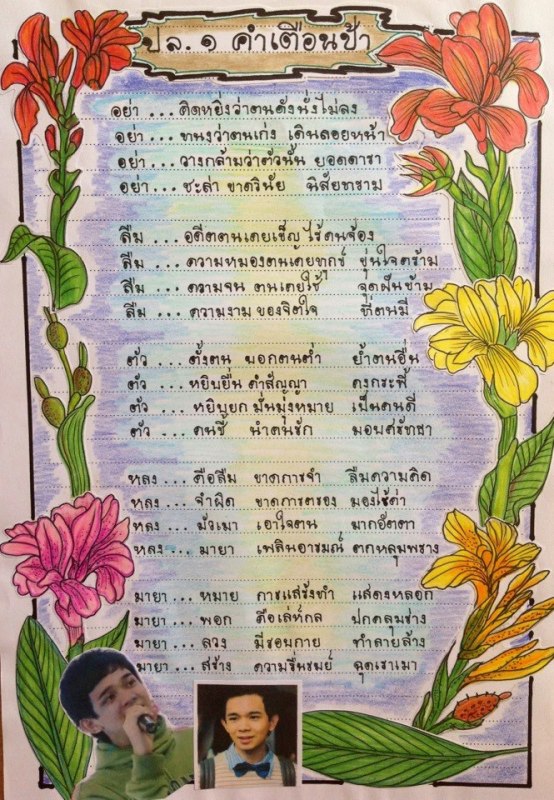 ปล. ๑ คำเตือนป้า
อย่า ... คิดหยิ่งว่าตนดังนั่งไม่ลง
อย่า ... ทนงว่าตนเก่ง เดินลอยหน้า
อย่า ... วางกล้ามว่าตัวนั้น ยอดดารา
อย่า ... ชะล่า ขาดวินัย นิสัยทราม
ลืม ... อดีตตนเคยเข็ญ ไร้คนจ้อง
ลืม ... ความหมองตนเคยทุกข์ ขุ่นใจคร้าม
ลืม ... ความจน ตนเคยใช้ จุดฝันข้าม
ลืม ... ความงาม ของจิตใจ ที่ตนมี
ตัว ... ตั้งตน ยอกตนต่ำ ย้ำตนอื่น
ตัว ... หยิบยื่น คำสัญญา คงกระพี้
ตัว ... หยิบยก มั่นมุ่งหมาย เป็นคนดี
ตัว ... คนชี้ นำคนรัก มอบศรัทธา
หลง ... คือลืม ขาดการจำ ลืมความคิด
หลง ... จำผิด ขาดการตรอง มองไร้ค่า
หลง ... มัวเมา เอาใจตน มากอัตตา
หลง ... มายา เพลินอารมณ์ ตกหลุมพราง
มายา ... หมาย การแสร้งทำ แสดงหลอก
มายา ... พอก คือเล่ห์กล ปกคลุมร่าง
มายา ... ลวง มีรอบกาย ทำลายล้าง
มายา ... สร้าง ความรื่นรมย์ ฉุดเราเมา